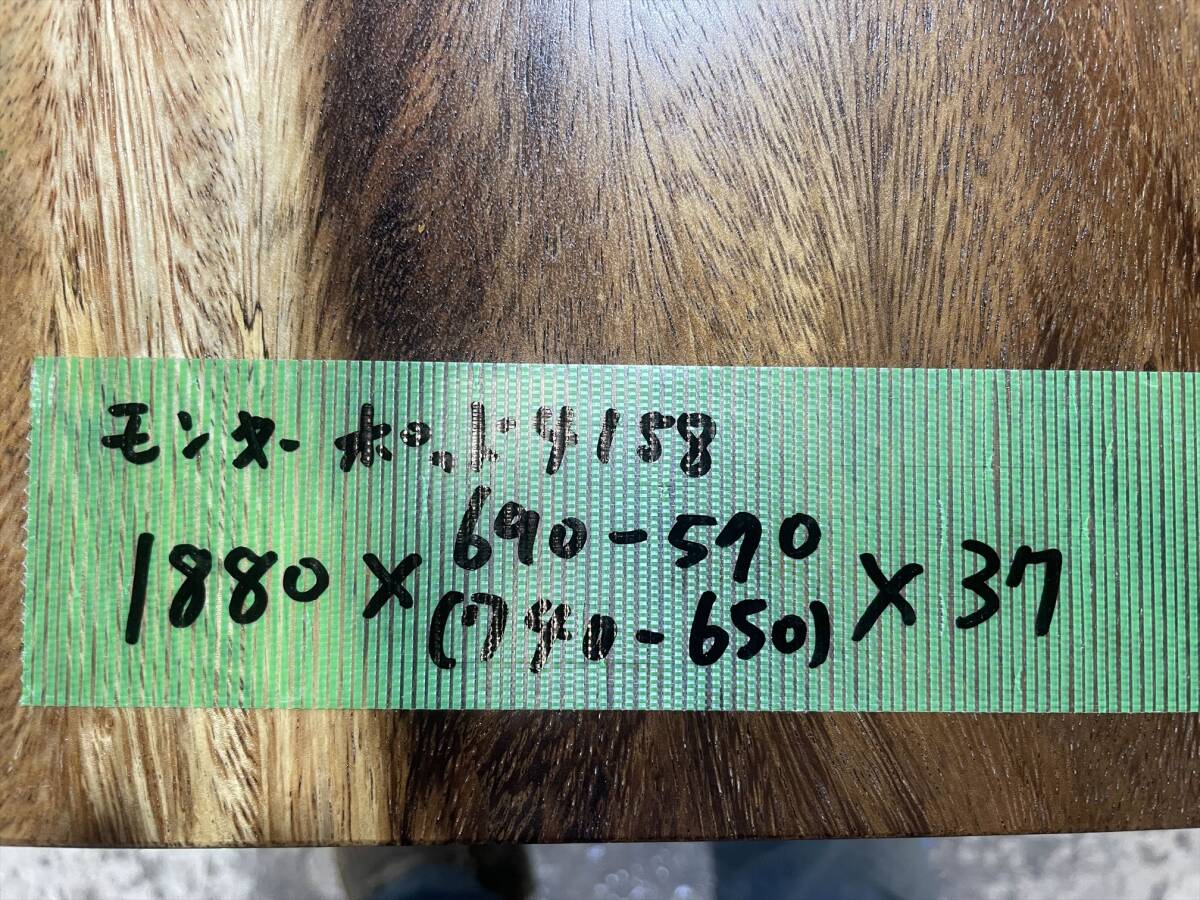 モンキーポッド4158
1880 × 690-570 (740-650) × 37